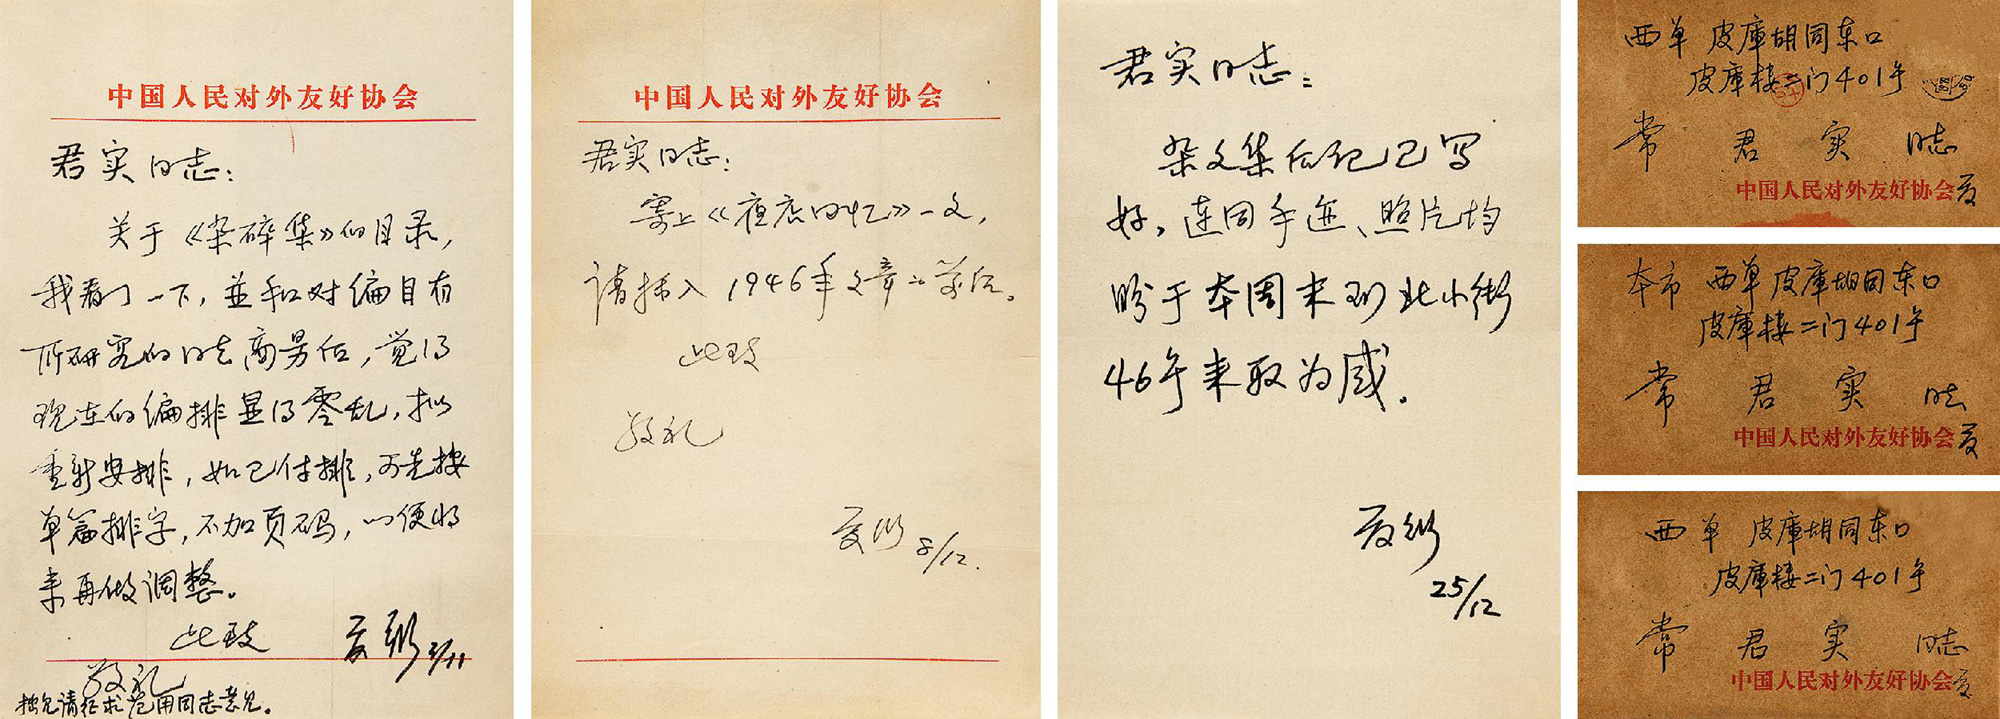 中国人民对外友好协会
君实同志：
关于《杂碎集》的目录，
我看了一下，並和对编目有
所研究的同志商量后，觉得
现在的编排显得零乱，拟
重新安排，如已付排，可先按
单篇排字，不加页码，以便将
来再做调整。
此致
夏衍 3/11
敬礼
拙见请征求范用同志意见。
中国人民对外友好协会
君实同志：
寄上《夜店回忆》一文，
请插入1946年文章之前后。
此致
敬礼
夏衍 8/12.
君实同志：
杂文集后记已写
好，连同手迹、照片均
盼于本周末到北小街
46号来取为感。
夏衍
25/12
西单 皮庫胡同东口
皮庫楼二门401号
常君实同志
中国人民对外友好协会夏
本市 西单皮庫胡同东口
皮庫楼二门401号
常君实同志
中国人民对外友好协会夏
西单 皮庫胡同东口
皮庫楼二门401号
常君实同志
中国人民对外友好协会夏